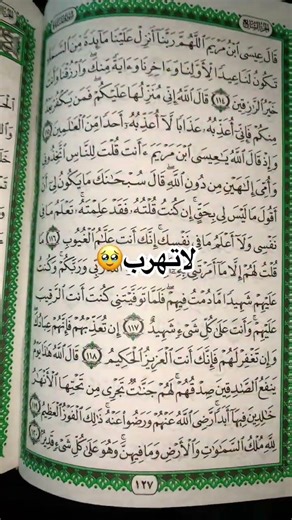 قَالَ عِيسَى ابْنُ مَرْيَمَ اللَّهُمَّ رَبَّنَا أَنزِلْ عَلَيْنَا مَائِدَةً مِنَ السَّمَاءِ
تَكُونُ لَنَا عِيدًا لِأَوَّلِنَا وَءَاخِرِنَا وَءَايَةً مِنكَ وَارْزُقْنَا وَأَنتَ
خَيْرُ الرَّازِقِينَ ١١٤ قَالَ اللَّهُ إِنِّي مُنَزِّلُهَا عَلَيْكُمْ فَمَن يَكْفُرْ بَعْدُ
مِنكُمْ فَإِنِّي أُعَذِّبُهُ عَذَابًا لَا أُعَذِّبُهُ أَحَدًا مِنَ الْعَالَمِينَ ١١٥
وَإِذْ قَالَ اللَّهُ يَاعِيسَى ابْنَ مَرْيَمَ ءَأَنتَ قُلْتَ لِلنَّاسِ اتَّخِذُونِي
وَأُمِّيَ إِلَاهَيْنِ مِن دُونِ اللَّهِ قَالَ سُبْحَانَكَ مَا يَكُونُ لِي أَنْ
أَقُولَ مَا لَيْسَ لِي بِحَقٍّ إِن كُنتُ قُلْتُهُ فَقَدْ عَلِمْتَهُ تَعْلَمُ مَا فِي
نَفْسِي وَلَا أَعْلَمُ مَا فِي نَفْسِكَ إِنَّكَ أَنتَ عَلَّامُ الْغُيُوبِ ١١٦
مَا قُلْتُ لَهُمْ إِلَّا مَا أَمَرْتَنِي رَبِّي وَرَبَّكُمْ وَكُنتُ
لاتهرب🥹
عَلَيْهِمْ شَهِيدًا مَا دُمْتُ فِيهِمْ فَلَمَّا تَوَفَّيْتَنِي كُنتَ أَنتَ الرَّقِيبَ
عَلَيْهِمْ وَأَنتَ عَلَى كُلِّ شَيْءٍ شَهِيدٌ ١١٧ إِن تُعَذِّبْهُمْ فَإِنَّهُمْ عِبَادُكَ
وَإِن تَغْفِرْ لَهُمْ فَإِنَّكَ أَنتَ الْعَزِيزُ الْحَكِيمُ ١١٨ قَالَ اللَّهُ هَذَا يَوْمُ
يَنفَعُ الصَّادِقِينَ صِدْقُهُمْ لَهُمْ جَنَّاتٌ تَجْرِي مِن تَحْتِهَا الْأَنْهَارُ
خَالِدِينَ فِيهَا أَبَدًا رَّضِيَ اللَّهُ عَنْهُمْ وَرَضُوا عَنْهُ ذَلِكَ الْفَوْزُ الْعَظِيمُ ١١٩
لِلَّهِ مُلْكُ السَّمَاوَاتِ وَالْأَرْضِ وَمَا فِيهِنَّ وَهُوَ عَلَى كُلِّ شَيْءٍ قَدِيرٌ ١٢٠
١٢٧